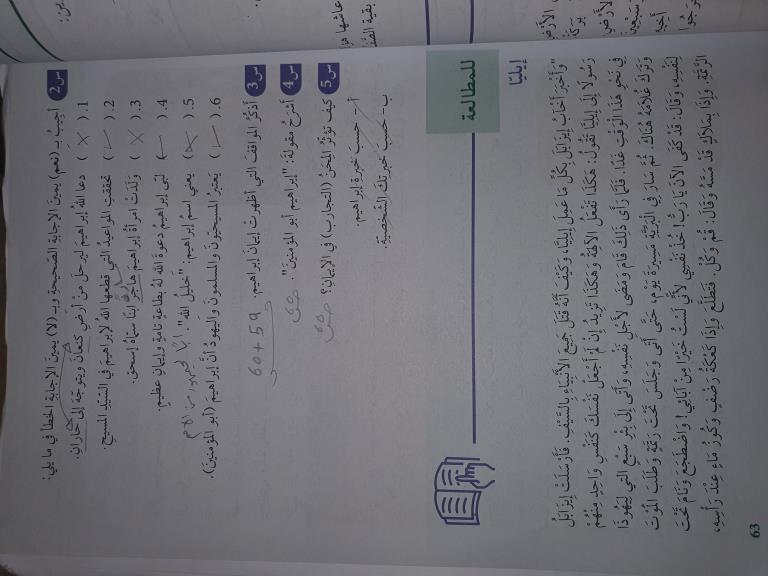 س2 أجيبُ بـ (نعم) يمينَ الإجابةِ الصّحيحةِ وبـ (لا) يمينَ الإجابةِ الخطأ في ما يلي:
1. ( × ) دعا اللهُ إبراهيم ليرحل من أرضِ كنعان ويتوجّهَ إلى حاران.
2. ( ✓ ) تحققت المواعيدُ التي قطعها اللهُ لإبراهيم في السّيّدِ المسيحِ.
3. ( × ) وَلَدَتْ امرأةُ إبراهيمَ هاجرُ ابنًا سمّاهُ إسحق.
4. ( ✓ ) لبّى إبراهيمُ دعوةَ اللهِ لهُ بطاعةٍ تامةٍ وإيمانٍ عظيمٍ.
5. ( × ) يعني اسمُ إبراهيم: "خليلُ الله".
6. ( ✓ ) يَعتبِرُ المسيحيّونَ والمسلمونَ واليهودُ أنّ إبراهيمَ (أبو المؤمنينَ).
س3 أذكرُ المواقفَ التي أظهرتْ إيمانَ إبراهيم. 60+59
س4 أشرحُ مقولةَ: "إبراهيم أبو المؤمنين".
س5 كيفَ تؤثّرُ المِحَنُ (التجارب) في الإيمانِ؟
أ- حسبَ خبرةِ إبراهيم.
ب- حسبَ خبرتِكَ الشّخصيّةِ.
للمطالعة
إيليّا
"وَأَخْبَرَ أَخْآبُ إِيزَابَلَ بِكُلِّ مَا عَمِلَ إِيلِيَّا، وَكَيْفَ أَنَّهُ قَتَلَ جَمِيعَ الأَنْبِيَاءِ بِالسَّيْفِ. فَأَرْسَلَتْ إِيزَابَلُ
رَسُولًا إِلَى إِيلِيَّا تَقُولُ: هكَذَا تَفْعَلُ الآلِهَةُ وَهكَذَا تَزِيدُ إِنْ لَمْ أَجْعَلْ نَفْسَكَ كَنَفْسِ وَاحِدٍ مِنْهُمْ
فِي نَحْوِ هذَا الْوَقْتِ غَدًا. فَلَمَّا رَأَى ذلِكَ قَامَ وَمَضَى لأَجْلِ نَفْسِهِ، وَأَتَى إِلَى بِئْرِ سَبْعٍ الَّتِي لِيَهُوذَا
وَتَرَكَ غُلاَمَهُ هُنَاكَ ثُمَّ سَارَ فِي الْبَرِّيَّةِ مَسِيرَةَ يَوْمٍ، حَتَّى أَتَى وَجَلَسَ تَحْتَ رَتَمَةٍ وَطَلَبَ الْمَوْتَ
لِنَفْسِهِ، وَقَالَ: قَدْ كَفَى الآنَ يَا رَبُّ! خُذْ نَفْسِي لأَنِّي لَسْتُ خَيْرًا مِنْ آبَائِي! وَاضْطَجَعَ وَنَامَ تَحْتَ
الرَّتَمَةِ. وَإِذَا بِمَلاَكٍ قَدْ مَسَّهُ وَقَالَ: قُمْ وَكُلْ. فَتَطَلَّعَ وَإِذَا كَعْكَةُ رَضْفٍ وَكُوزُ مَاءٍ عِنْدَ رَأْسِهِ،
63